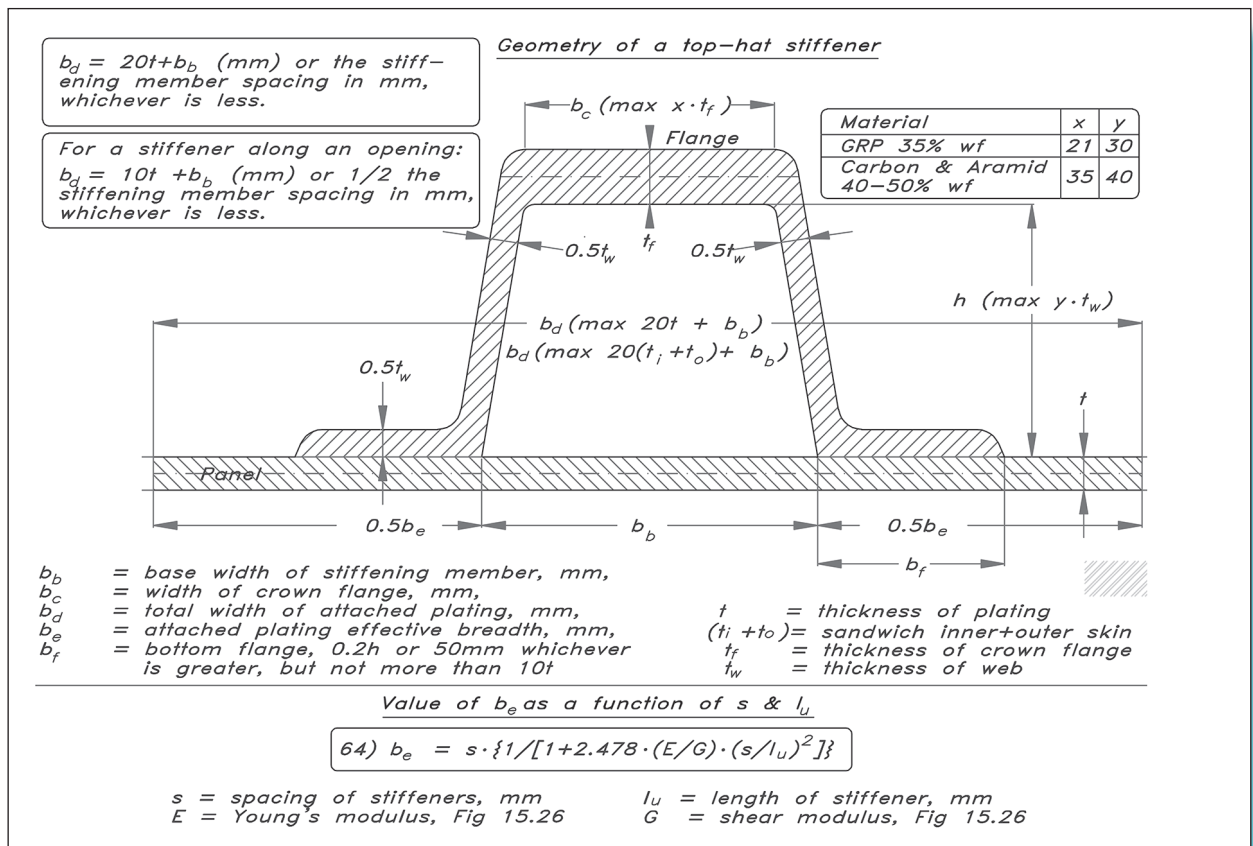 Geometry of a top-hat stiffener
b_d = 20t+b_b (mm) or the stiff-
ening member spacing in mm,
whichever is less.
For a stiffener along an opening:
b_d = 10t +b_b (mm) or 1/2 the
stiffening member spacing in mm,
whichever is less.
b_c (max x·t_f)
Flange
Material x y
GRP 35% wf 21 30
Carbon & Aramid
40-50% wf 35 40
0.5t_w
t_f
0.5t_w
h (max y·t_w)
b_d (max 20t + b_b)
b_d (max 20(t_i +t_o)+ b_b)
0.5t_w
t
Panel
0.5b_e
b_b
0.5b_e
b_f
b_b = base width of stiffening member, mm,
b_c = width of crown flange, mm,
b_d = total width of attached plating, mm,
b_e = attached plating effective breadth, mm,
b_f = bottom flange, 0.2h or 50mm whichever
is greater, but not more than 10t
t = thickness of plating
(t_i +t_o)= sandwich inner+outer skin
t_f = thickness of crown flange
t_w = thickness of web
Value of b_e as a function of s & l_u
64) b_e = s·{1/[1+2.478·(E/G)·(s/l_u)²]}
s = spacing of stiffeners, mm
E = Young's modulus, Fig 15.26
l_u = length of stiffener, mm
G = shear modulus, Fig 15.26